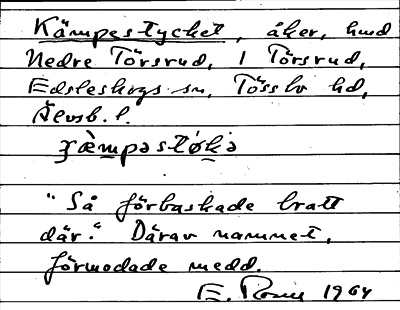 Kämpestycket, åker, hmd
Nedre Törsrud, 1 Törsrud,
Edsleskogs sn, Tössbo hd,
Älvsb. l.
"Så förbaskade bratt
där." Därav namnet,
förmodade medd.
E. 1964